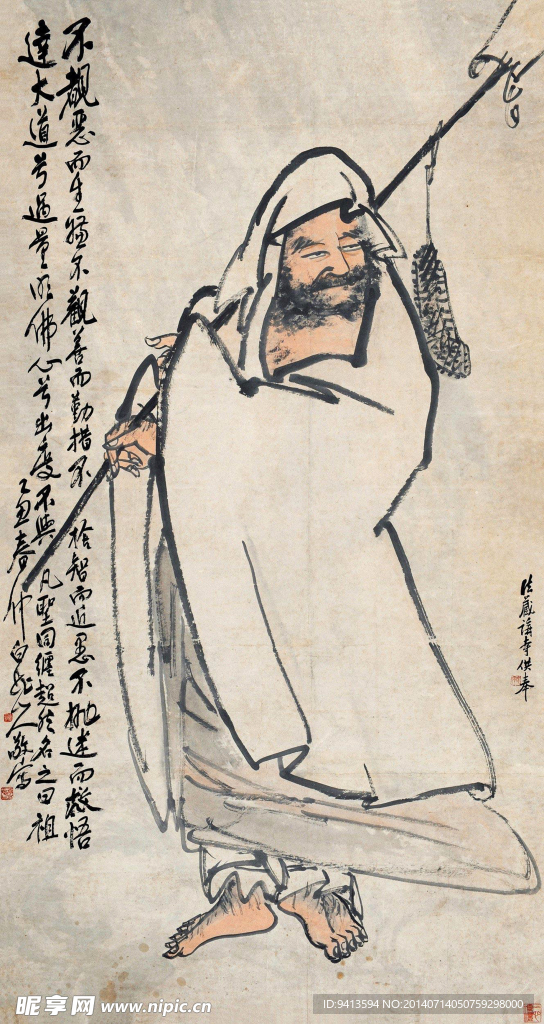 不觀惡而生嫌不觀善而勤措不捨智而近愚不抛迷而救悟
達大道兮過量明佛心兮出度不與凡聖同纏超然名之曰祖
乙丑春仲白龍山人敬寫
法藏講寺供奉
昵享网 www.nipic.cn
ID:9413594 NO:20140714050759298000